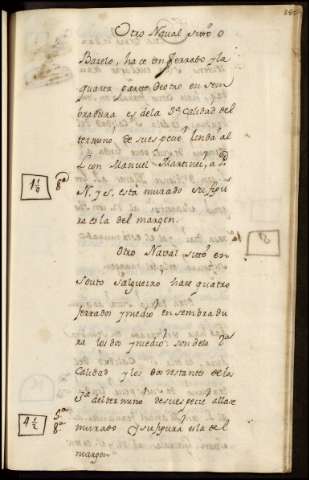 Otro Naval sittº o
Barelo, hace un ferrado y la
quarta parte de otro en sem
bradura es de la 3ª Calidad del
termino de su espeue linda al
L con Manuel Martinez, a
N. y S. está murado su figu
ra es la del margen.
1 1/9 8ª
Otro Naval sittº en
Souto Salgueiro hace quatro
ferrados y medio en sembradu
ra los dos y medio: son de la
Calidad y los dos restantes de la
3ª del termino de su espeuie alla se
murado y su figura es la del
margen
4 1/2 5ª
8ª